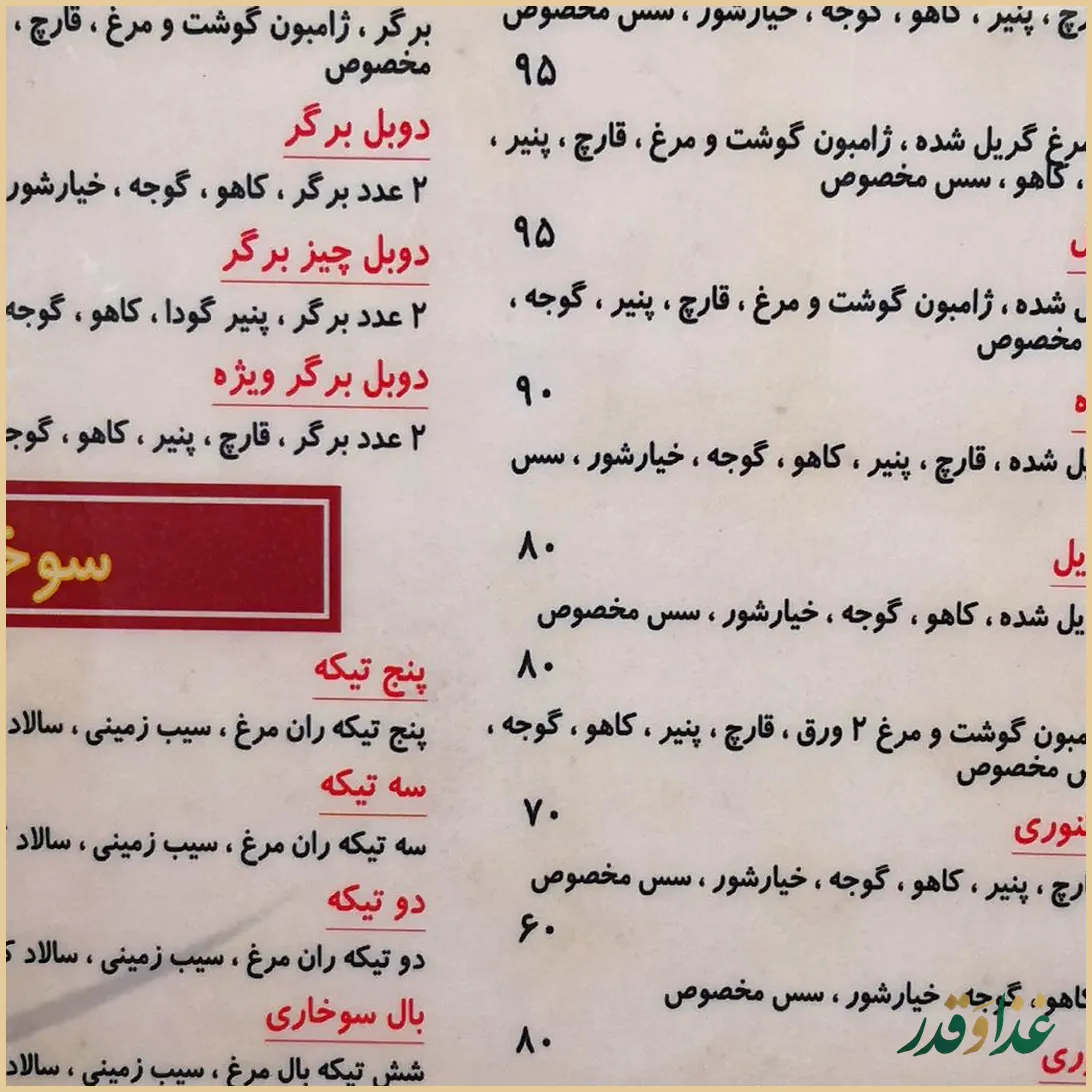 رچ ، پنیر ، کاهو ، گوجه ، خیارشور ، سس مخصوص
۹۵
مرغ گریل شده ، ژامبون گوشت و مرغ ، قارچ ، پنیر ،
، کاهو ، سس مخصوص
۹۵
شده ، ژامبون گوشت و مرغ ، قارچ ، پنیر ، گوجه ،
مخصوص
۹۰
یل شده ، قارچ ، پنیر ، کاهو ، گوجه ، خیارشور ، سس
۸۰
یل
یل شده ، کاهو ، گوجه ، خیارشور ، سس مخصوص
۸۰
مبون گوشت و مرغ ۲ ورق ، قارچ ، پنیر ، کاهو ، گوجه ،
س مخصوص
۷۰
نوری
رچ ، پنیر ، کاهو ، گوجه ، خیارشور ، سس مخصوص
۶۰
کاهو ، گوجه ، خیارشور ، سس مخصوص
۸۰
ری
برگر ، ژامبون گوشت و مرغ ، قارچ ،
مخصوص
دوبل برگر
۲ عدد برگر ، کاهو ، گوجه ، خیارشور
دوبل چیز برگر
۲ عدد برگر ، پنیر گودا ، کاهو ، گوجه
دوبل برگر ویژه
۲ عدد برگر ، قارچ ، پنیر ، کاهو ، گوج
سوخ
پنج تیکه
پنج تیکه ران مرغ ، سیب زمینی ، سالاد
سه تیکه
سه تیکه ران مرغ ، سیب زمینی ، سالاد
دو تیکه
دو تیکه ران مرغ ، سیب زمینی ، سالاد ک
بال سوخاری
شش تیکه بال مرغ ، سیب زمینی ، سالاد
غذا و قدر